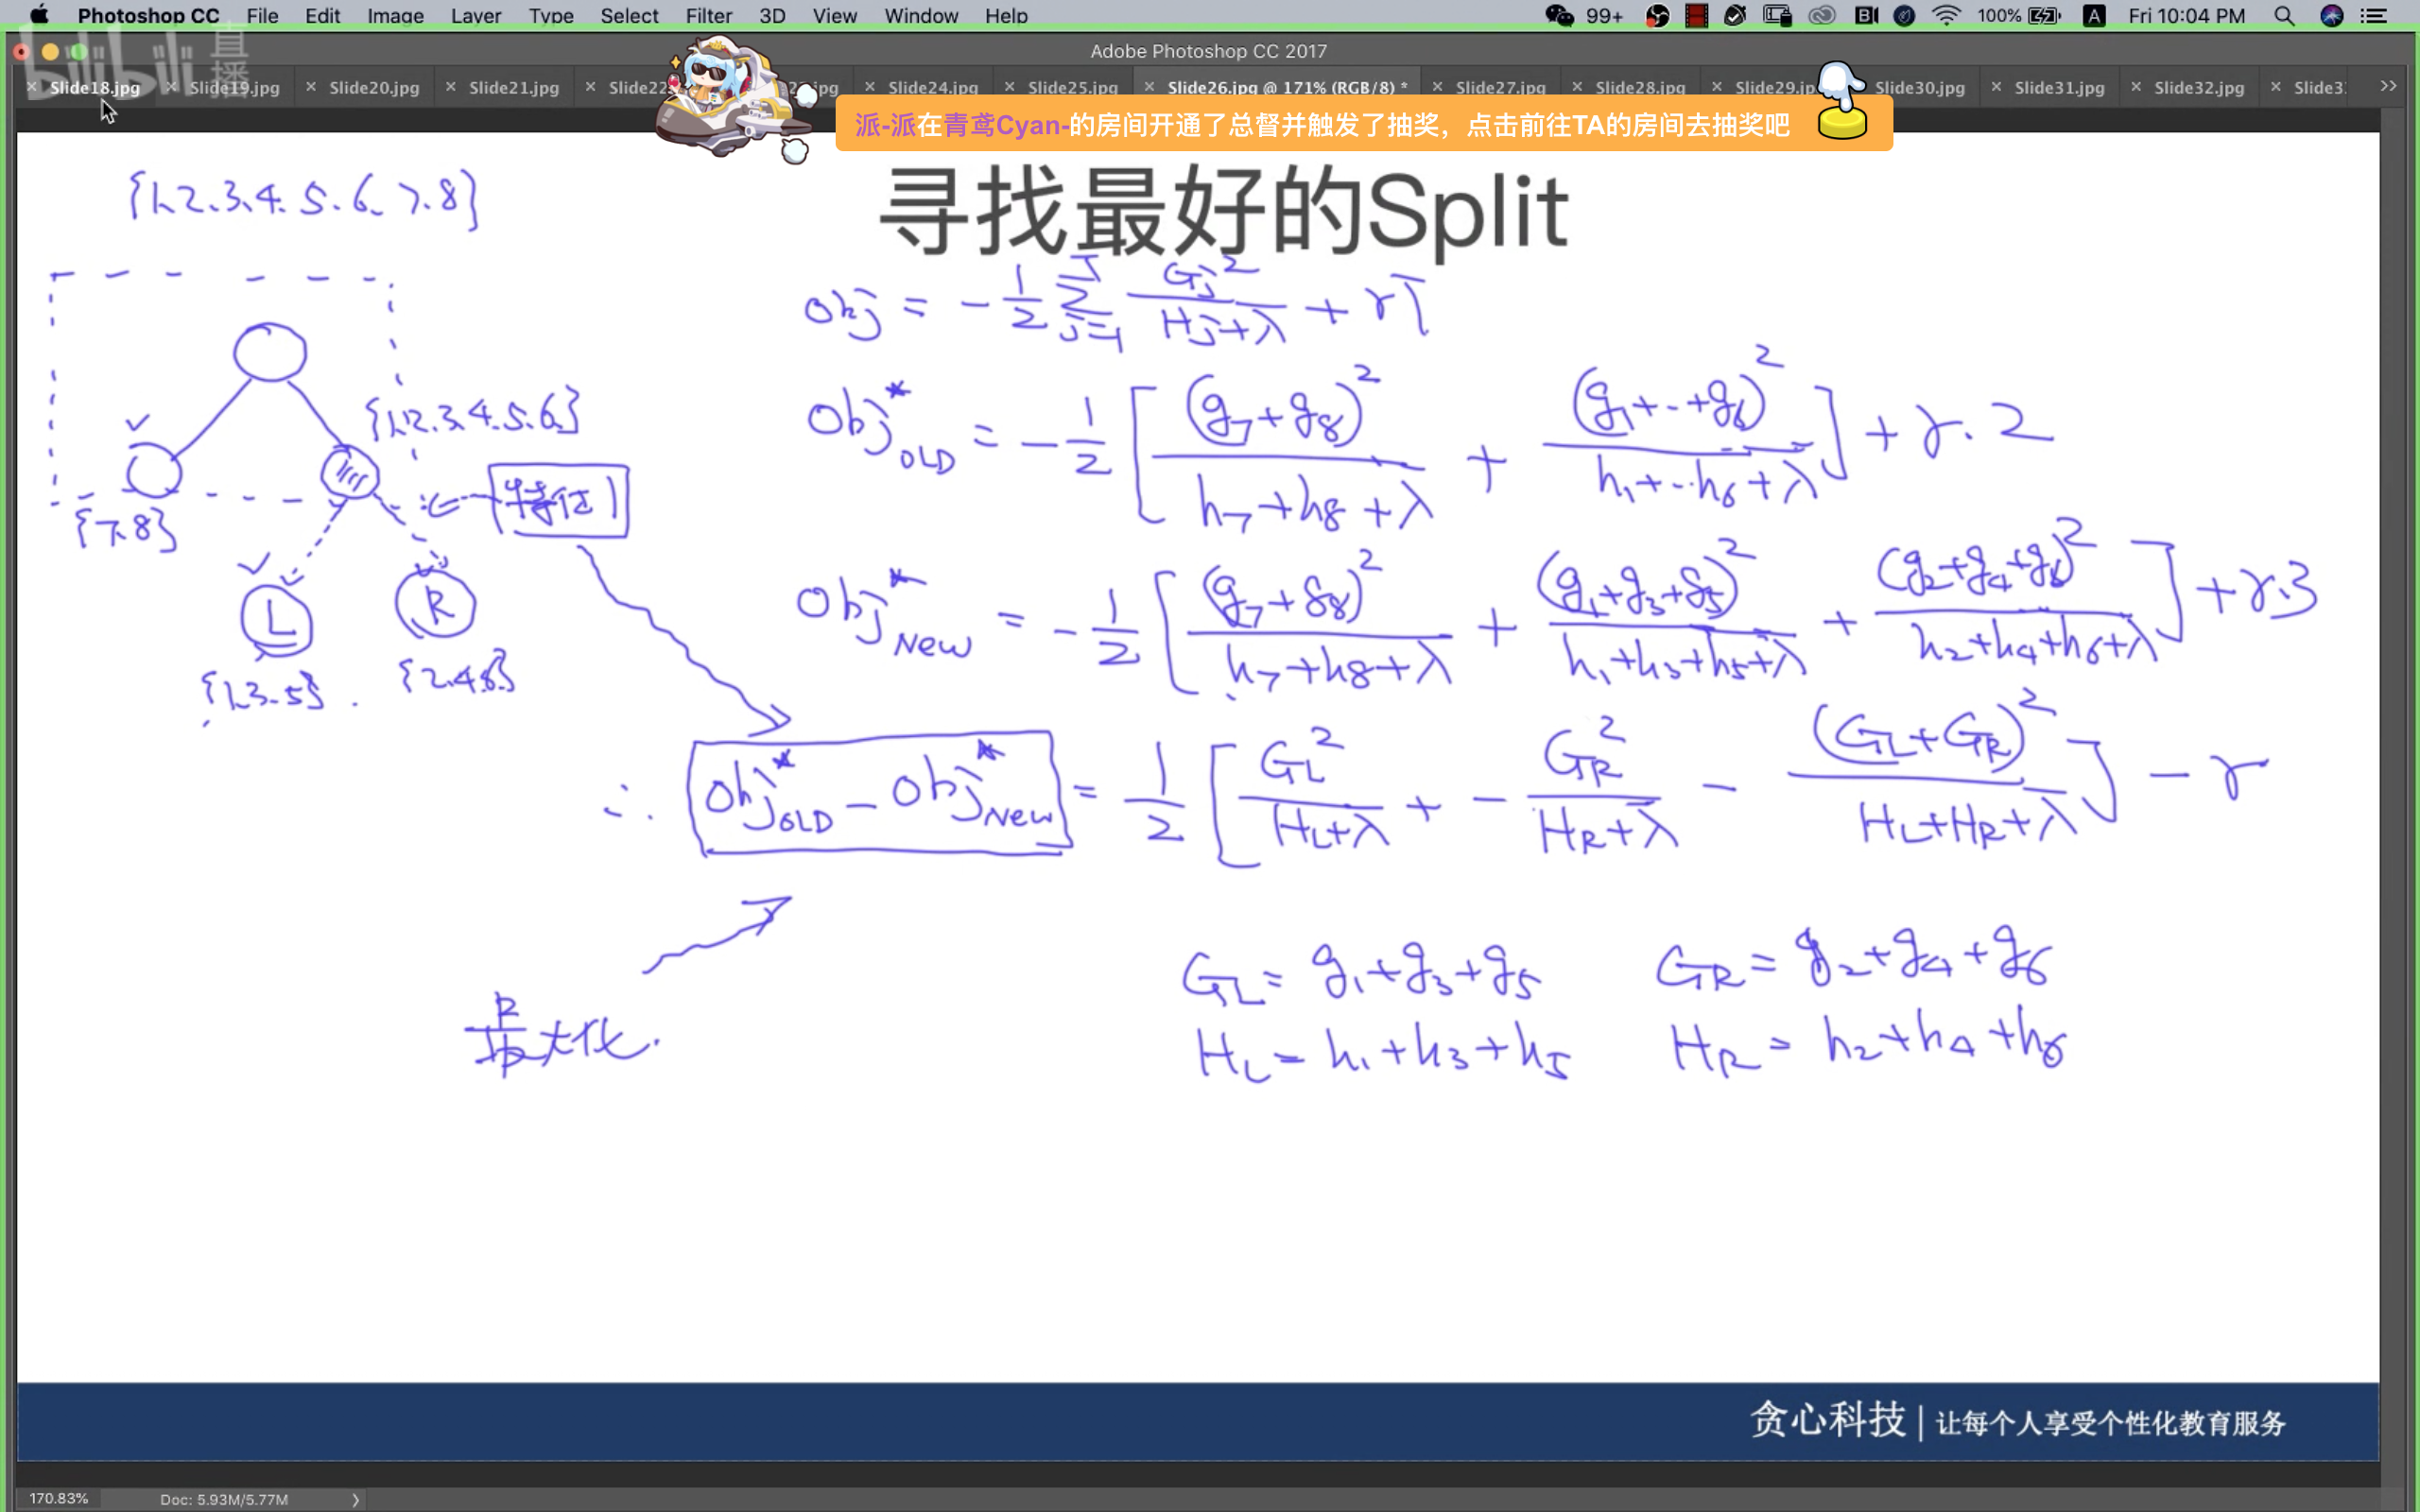 Photoshop CC File Edit Image Layer Type Select Filter 3D View Window Help 99+ 100% A Fri 10:04 PM
bilibili 直播
Adobe Photoshop CC 2017
Slide18.jpg Slide19.jpg Slide20.jpg Slide21.jpg Slide22 Slide24.jpg Slide25.jpg Slide26.jpg @ 171% (RGB/8) * Slide27.jpg Slide28.jpg Slide29.jp Slide30.jpg Slide31.jpg Slide32.jpg Slide3
派-派在青鸢Cyan-的房间开通了总督并触发了抽奖，点击前往TA的房间去抽奖吧
寻找最好的Split
{1.2.3.4.5.6.7.8}
Obj = -1/2 Σ_{j=1}^{T} Gj²/(Hj+λ) + γT
{1.2.3.4.5.6}
{7.8}
特征1
L
R
{1.3.5}
{2.4.6}
Obj*OLD = -1/2 [(g7+g8)²/(h7+h8+λ) + (g1+..+g6)²/(h1+..h6+λ)] + γ.2
Obj*New = -1/2 [(g7+g8)²/(h7+h8+λ) + (g1+g3+g5)²/(h1+h3+h5+λ) + (g2+g4+g6)²/(h2+h4+h6+λ)] + γ.3
∴ Obj*OLD - Obj*New = 1/2 [GL²/(HL+λ) + - GR²/(HR+λ) - (GL+GR)²/(HL+HR+λ)] - γ
最大化.
GL = g1+g3+g5 GR = g2+g4+g6
HL = h1+h3+h5 HR = h2+h4+h6
贪心科技 | 让每个人享受个性化教育服务
170.83% Doc: 5.93M/5.77M